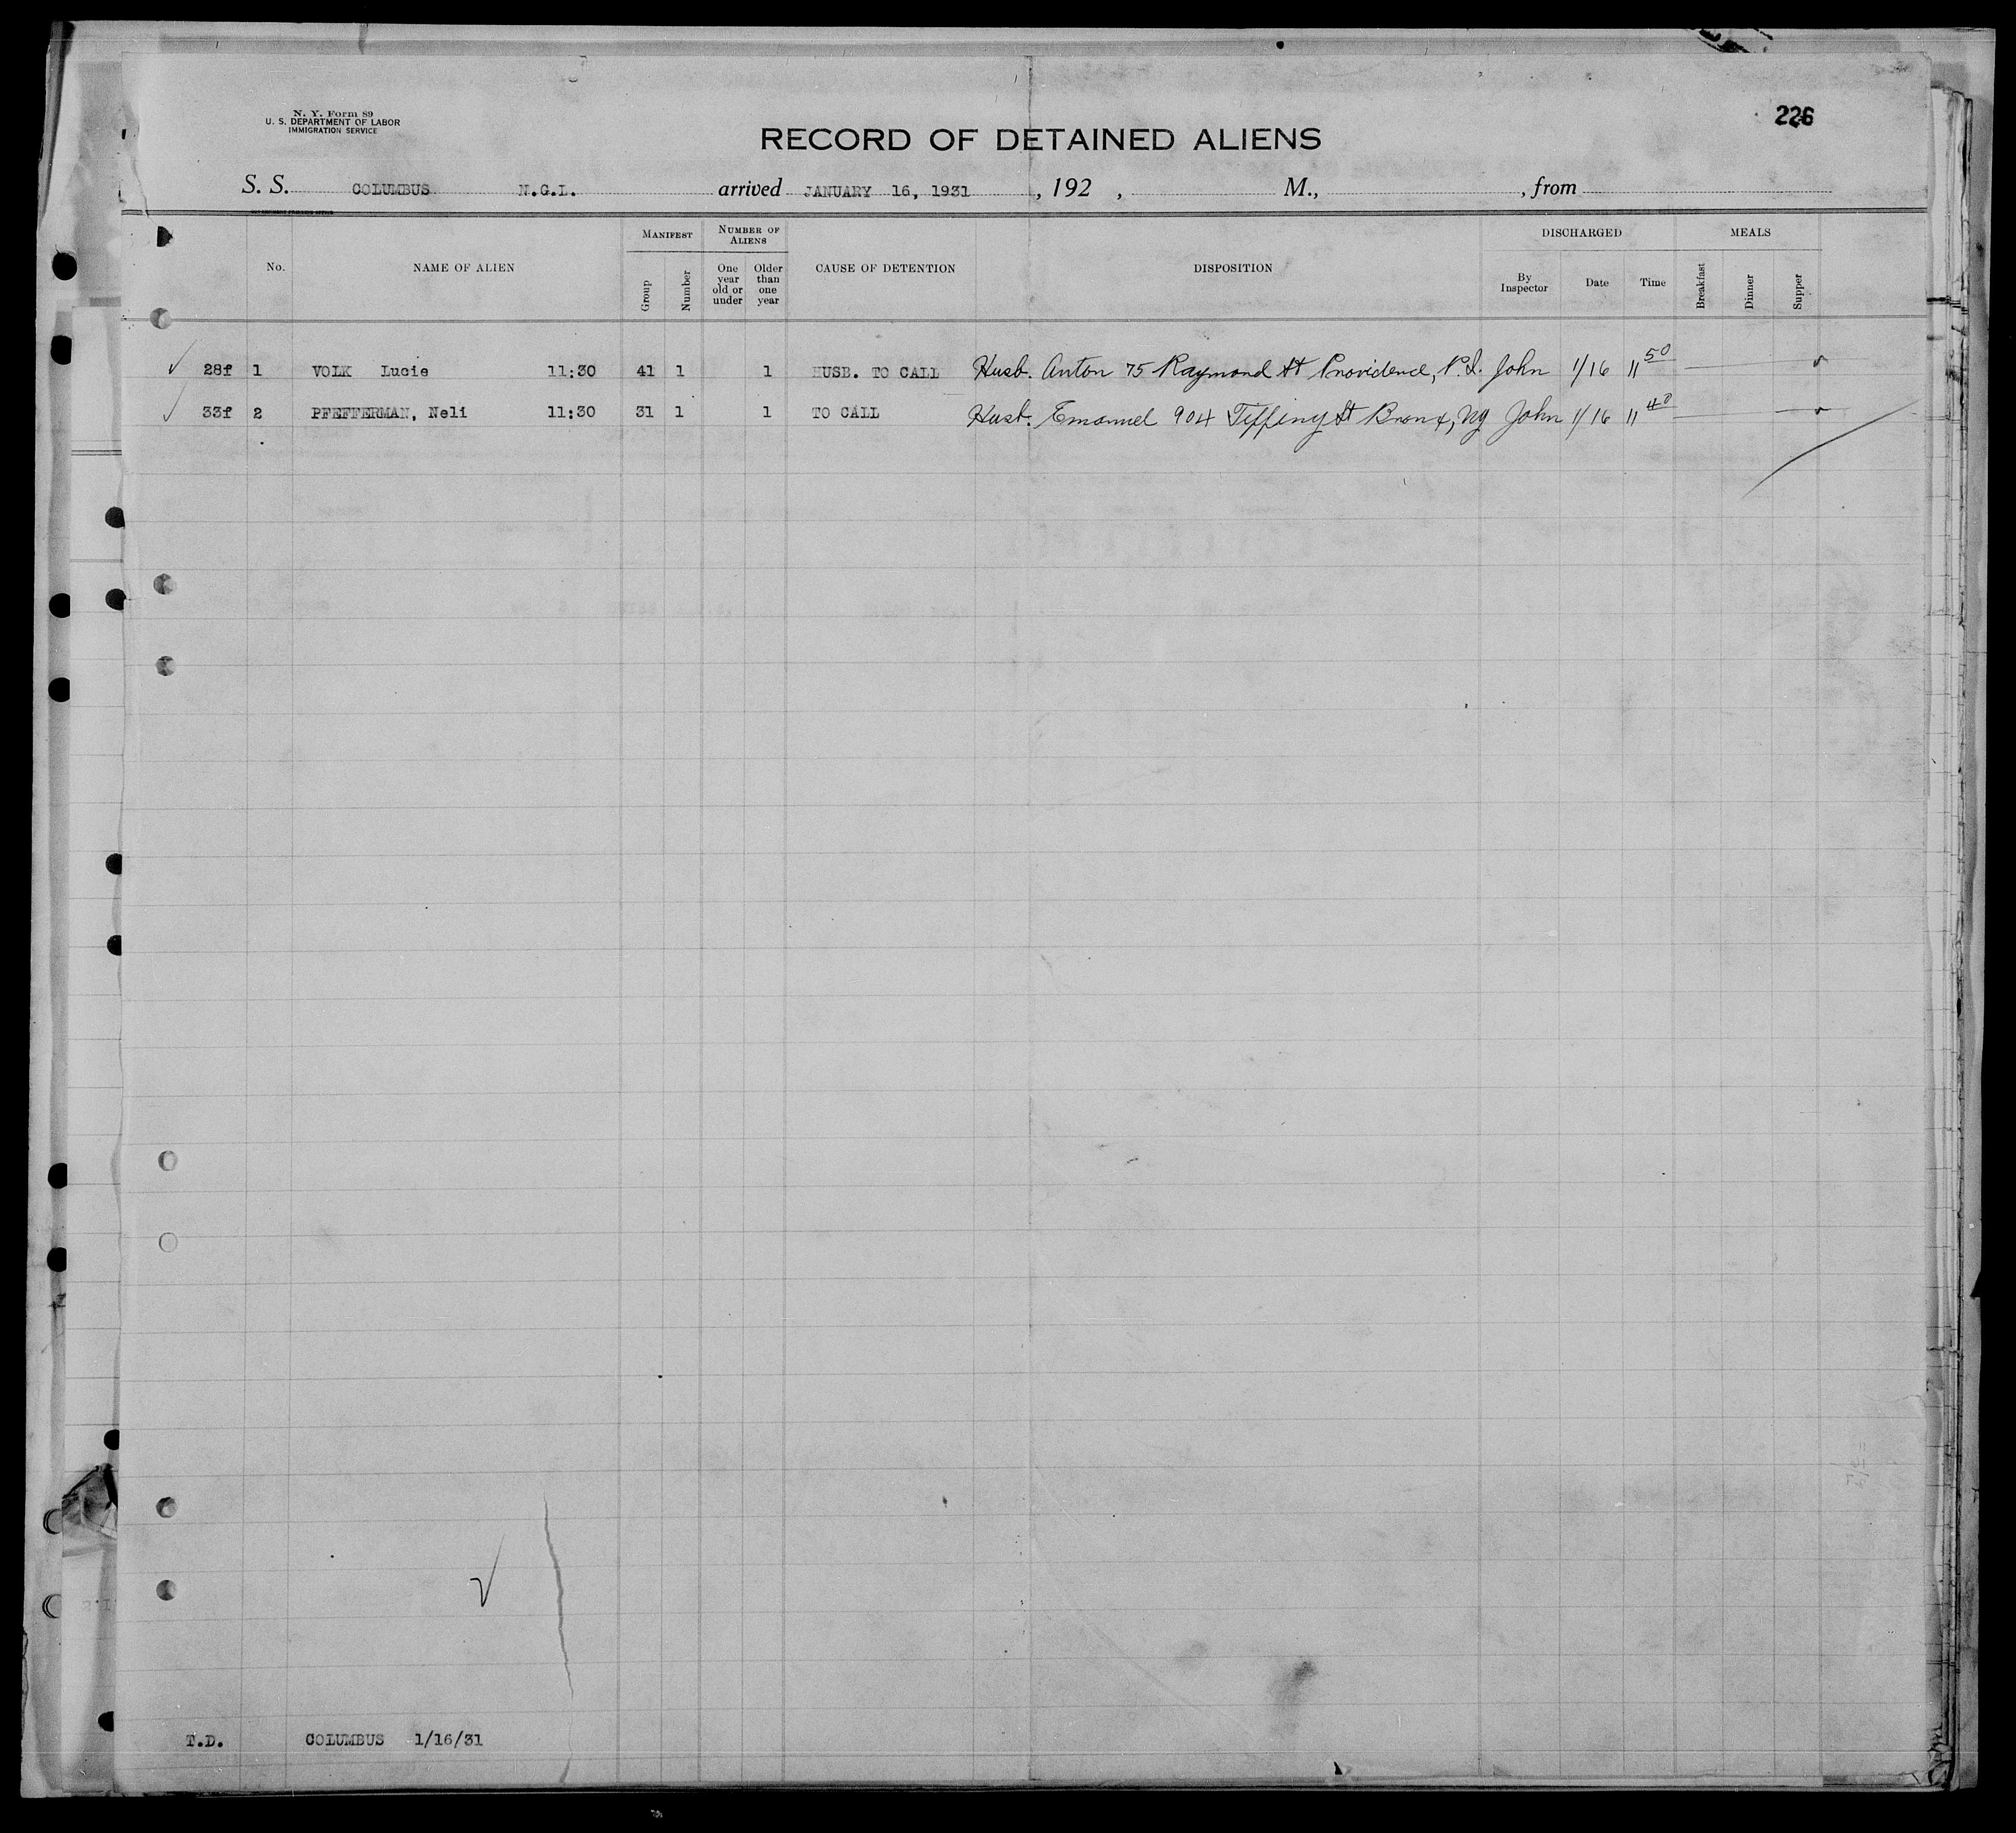 N. Y. Form 89
U. S. DEPARTMENT OF LABOR
IMMIGRATION SERVICE
226
RECORD OF DETAINED ALIENS
S. S. COLUMBUS N.G.L. arrived JANUARY 16, 1931, 192 , M., , from
GOVERNMENT PRINTING OFFICE
No. NAME OF ALIEN MANIFEST Group Number NUMBER OF ALIENS One year old or under Older than one year CAUSE OF DETENTION DISPOSITION DISCHARGED By Inspector Date Time MEALS Breakfast Dinner Supper
28f 1 VOLK Lucie 11:30 41 1 1 HUSB. TO CALL Husb. Anton 75 Raymond St Providence, R.I. John 1/16 11 50
33f 2 PFEFFERMAN, Neli 11:30 31 1 1 TO CALL Husb. Emanuel 904 Tiffiny St Bronx, Ny John 1/16 11 40
T.D. COLUMBUS 1/16/31